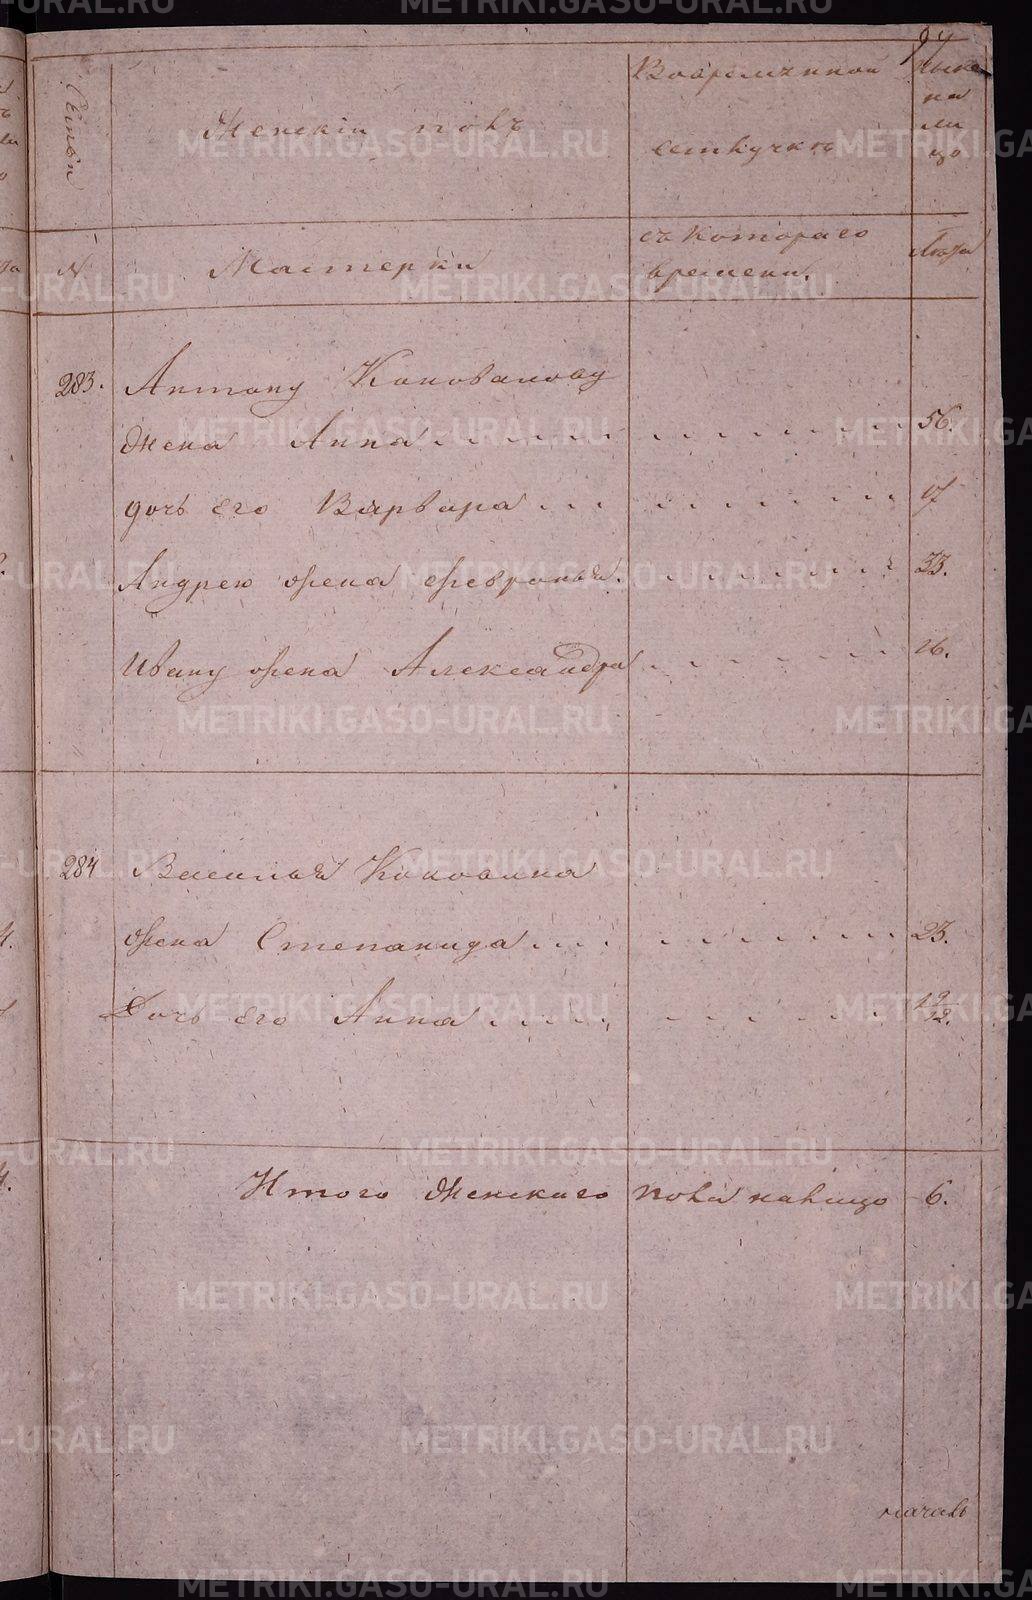 94
Семьи
Женскiй полъ
Во временной отлучкѣ
Ныне на лицо
N.
Мастерки
съ котораго времени.
Лѣта
283. Антону Коновалову
жена Анна 56.
дочь Его Варвара 17
Андрею жена Февронья 33.
Ивану жена Александра 26.
284 Василья Коновалва
жена Степанида 23.
Дочь Его Анна 19/12.
Итого женскаго пола налицо 6.
METRIKI.GASO-URAL.RU